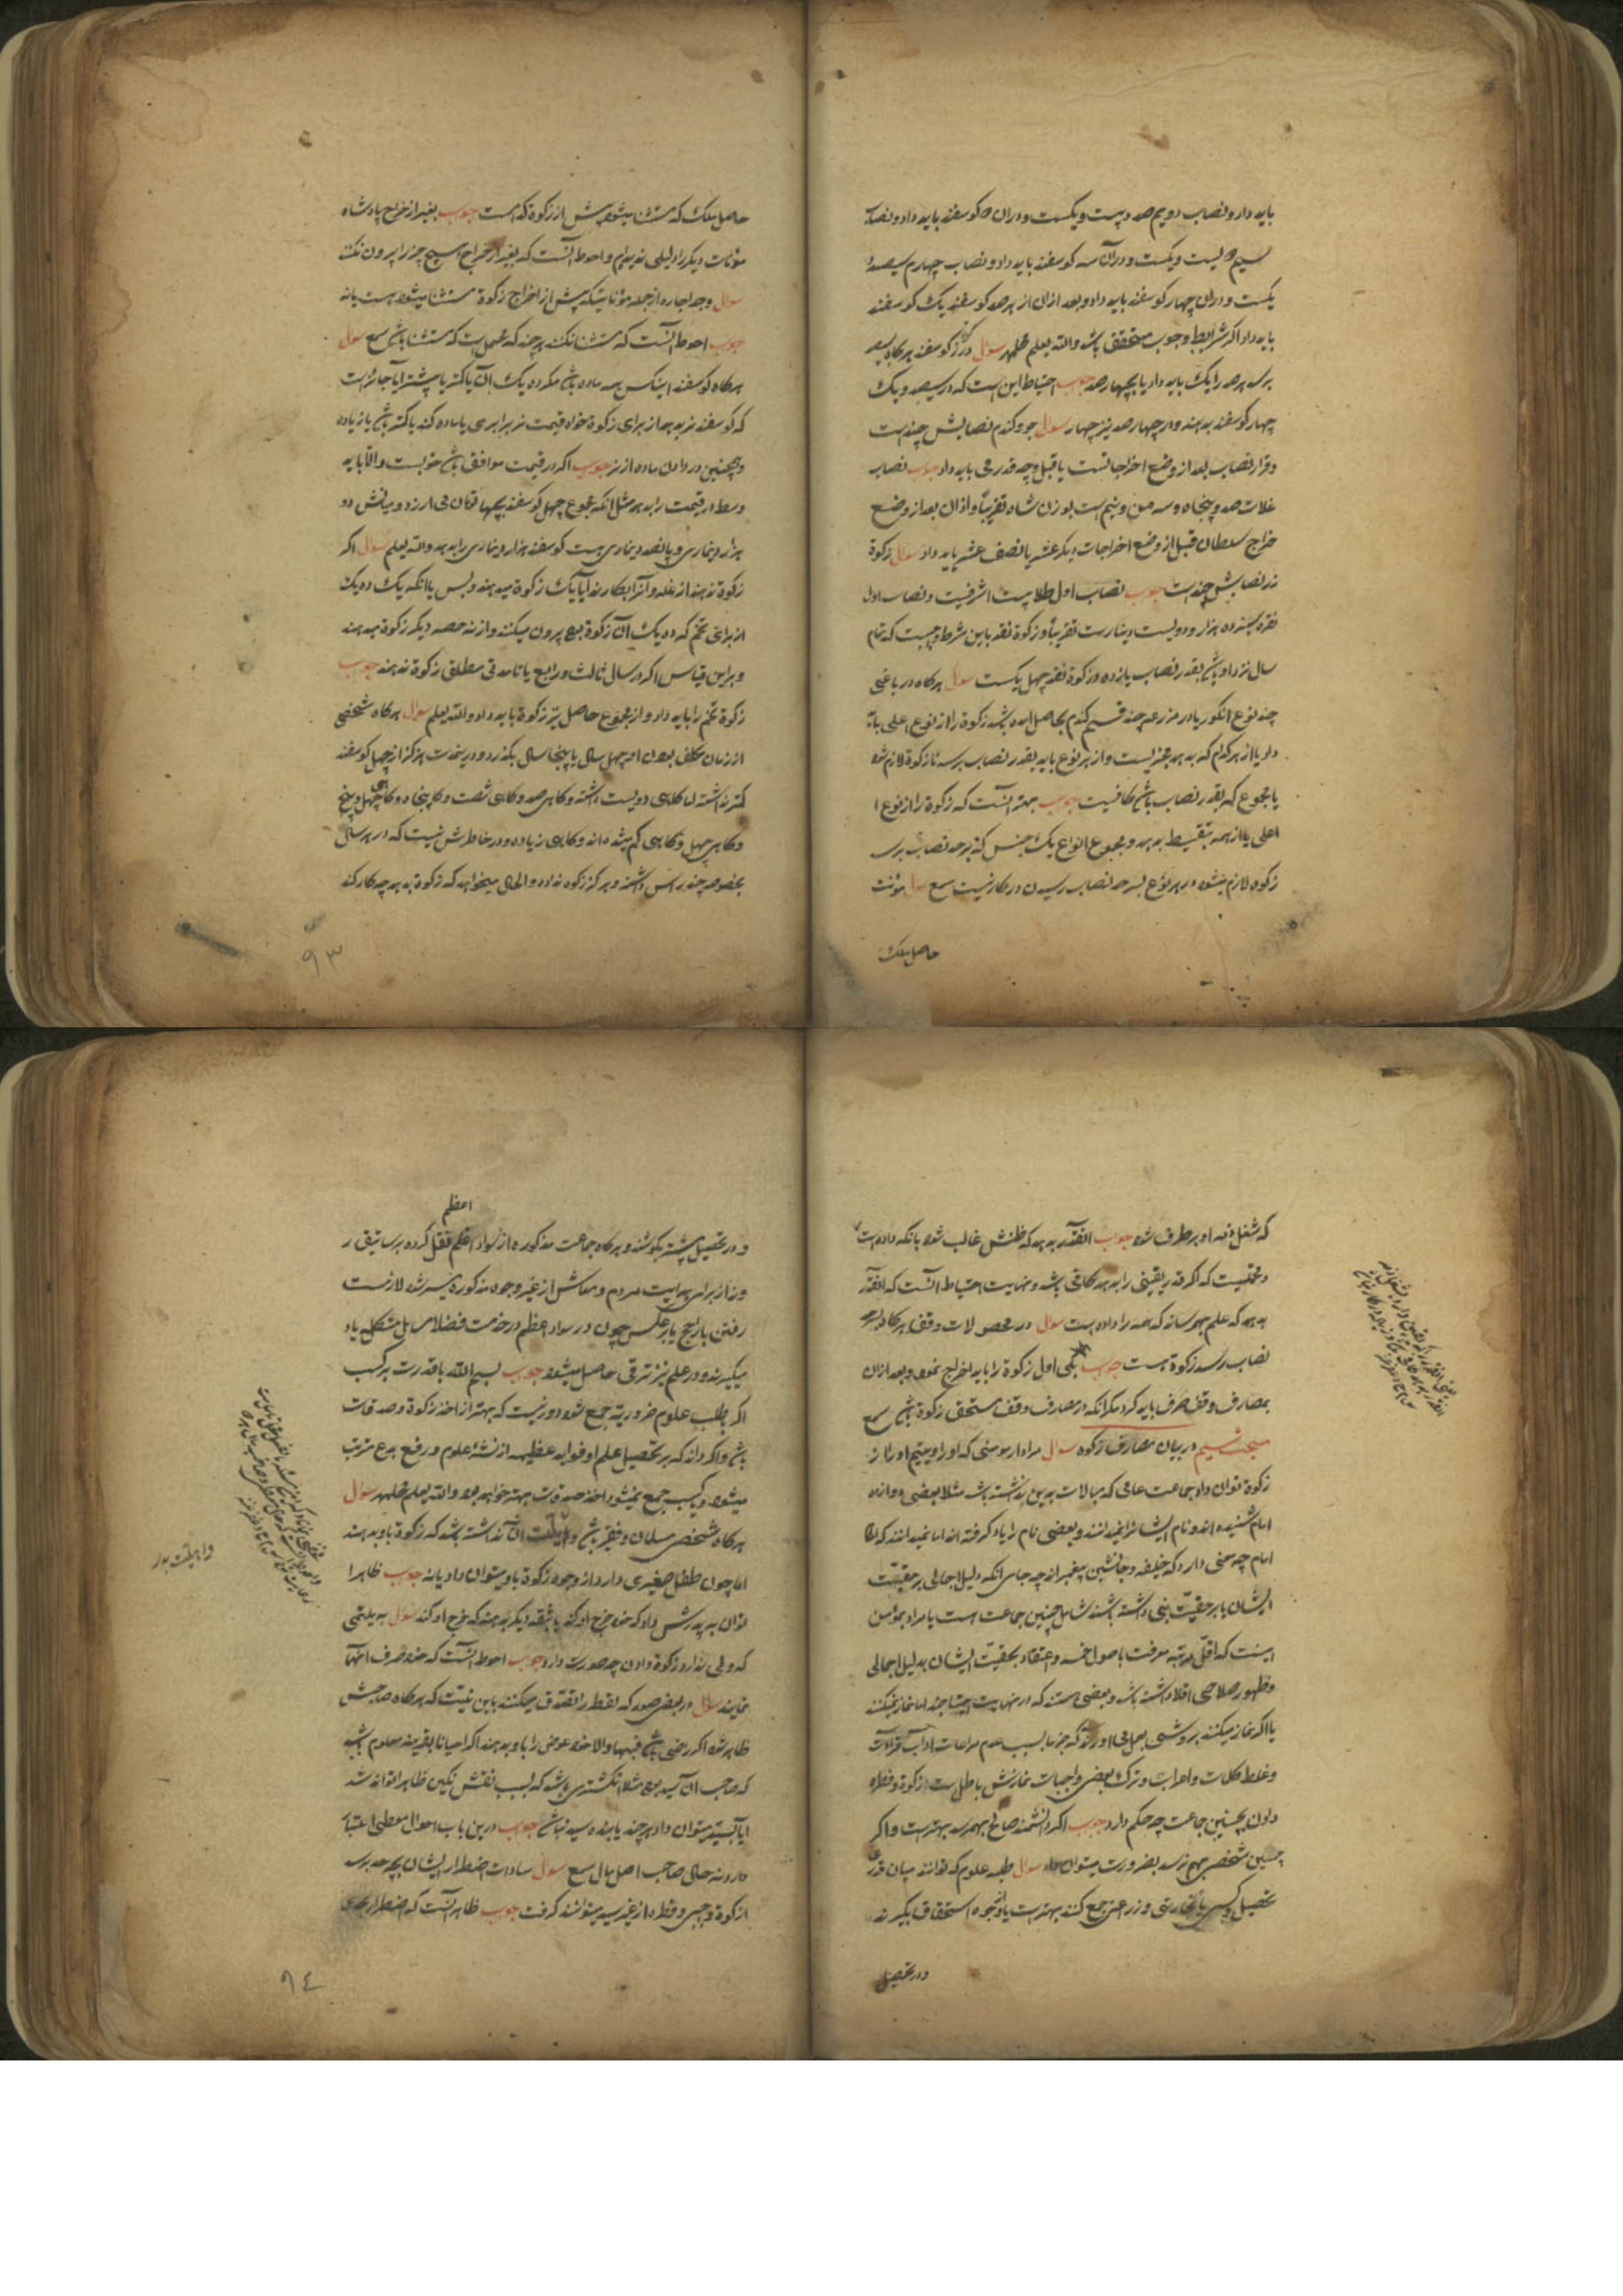 باید داد و نصاب دویم صد و بیست و یکست و در ان دو کوسفند باید داد و نصاب
سیم دویست و یکست و در آن سه کوسفند باید داد و نصاب چهارم سیصد و
یکست و در ان چهار کوسفند باید داد و بعد از ان از هر صد کوسفند یک کوسفند
باید داد اکر شرایط وجوب متحقق باشد والله یعلم سؤال در زکوة کوسفند هرکاه بسیصد
برسد هر صد را یک باید داد یا بچهارصد جوب احتیاط این است که در سیصد و یک
چهار کوسفند بدهند و در چهارصد نیز چهار سؤال جو و کندم نصابش چندست
و قرار نصاب بعد از وضع اخراجاتست یا قبل و چه قدر می باید داد جوب نصاب
غلات صد و پنجاه و سه من و نیم است بوزن شاه تقریباً و از ان بعد از وضع
خراج سلطان قبل از وضع اخراجات دیکر عشر یا نصف عشر باید داد سؤال زکوة
زر نصابش چندست جوب نصاب اول طلا بیست اشرفیست و نصاب اول
نقره ده هزار و دویست دینارست تقریباً و زکوة نقد باین شرط واجبست که تمام
سال نزد او باشد بقدر نصاب یازده و زکوة نقد چهل یکست سؤال هرکاه در باغی
چند نوع انکور یا در مزرعه چند قسم کندم بحاصل امده باشد زکوة را از نوع اعلی باید
داد یا از هر کدام که بدهد مجزیست و از هر نوع باید بقدر نصاب برسد تا زکوة لازم شود
یا مجموع که بقدر نصاب باشد کافیست جوب بهتر انست که زکوة را از نوع
اعلی یا از همه بتقسیط بدهد و مجموع انواع یک جنس که بحد نصاب برسد
زکوة لازم میشود و هر نوع بسرحد نصاب رسیدن در کار نیست سمع سؤال مؤنت
حاصل ملک
حاصل ملک که مستثنا میشود پیش از زکوة کدامست جوب بغیر از خراج پادشاه
مؤنات دیکر را دلیلی ندیدم و احوط انست که بغیر از خراج هیچ چیز را بیرون نکند
سؤال وجه اجاره از جمله مؤناتیکه پیش از اخراج زکوة مستثنا میشود هست یا نه
جوب احوط انست که مستثنا نکنند هرچند که محتمل است که مستثنا باشد سمع سؤال
هرکاه کوسفند اینکس همه ماده باشد مکر ده یک آن یا کمتر یا بیشتر ایا جایز است
که کوسفند نر بدهد از برای زکوة خواه قیمت نر برابری با ماده کند یا کمتر باشد یا زیاده
و همچنین در دادن ماده از نر جوب اکر در قیمت موافق باشد خوبست و الا باید
وسط در قیمت را بدهد مثل انکه مجموع چهل کوسفند بچهل تومان می ارزد و میانش دو
هزار دیناری و پانصد دیناری هست کوسفند هزار دیناری را بدهد والله یعلم سؤال اکر
زکوة ندهند از غله و آنرا بکارند آیا یک زکوة میدهند و بس یا انکه یک ده یک
از برای تخم که ده یک آن زکوة بود بیرون میکنند و از نه حصه دیکر زکوة میدهند
و براین قیاس اکر در سال ثالث و رابع یا تا مدتی مطلق زکوة ندهند جوب
زکوة تخم را باید داد و از مجموع حاصل نیز زکوة باید داد والله یعلم سؤال هرکاه شخصی
از زمان مکلف بودن او چهل سال یا پنجاه سال بکذرد و درین مدت هرکز از چهل کوسفند
کمتر نداشته اما کاهی دویست داشته و کاهی صد و کاهی شصت و کاه پنجاه و کاهی چهل و پنج
و کاهی چهل و کاهی کم میشده اند و کاهی زیاده و در خاطرش نیست که در هر سال
بخصوصه چند راس داشته و هرکز زکوة نداده و الحال میخواهد که زکوة بدهد چه کار کند
۹۳
که شغل ذمه او برطرف شود جوب انقدر بدهد که ظنش غالب شود بانکه داده است
و محتملست که اکر قدر یقینی را بدهد کافی باشد و نهایت احتیاط انست که انقدر
بدهد که علم بهم رساند که همه را داده است سؤال در محصولات وقف هرکاه بحد
نصاب رسد زکوة هست جوب بلی اول زکوة را باید اخراج نمود و بعد از ان
بمصارف وقف صرف باید کرد مکر انکه در مصارف وقف مستحق زکوة باشد سمع
مبحث سیم در بیان مصارف زکوة سؤال مراد از مومنی که او را و یتیم او را از
زکوة توان داد جماعت عامی که مبالات بدین نداشته باشد مثلا بعضی دوازده
امام شنیده اند و نام ایشانرا نمیدانند و بعضی نام را یاد کرفته اند اما نمیدانند که
امام چه معنی دارد که خلیفه و جانشین پیغمبراند چه جای انکه دلیل اجمالی بر حقیقت
ایشان یا بر حقیقت نبی داشته باشند شامل چنین جماعت هست یا مراد بمؤمن
اینست که اقل مرتبه معرفت باصول خمسه و اعتقاد بحقیت ایشان بدلیل اجمالی
و ظهور صلاحی اقلا داشته باشد و بعضی هستند که در نهایت احتیاجند اما نماز نمیکنند
یا اکر نماز میکنند بروشی بعمل می اورند که جزما بسبب عدم مراعات اداب قرائت
و غلط کلمات و اعراب و ترک بعضی واجبات نمازش باطل است زکوة و فطره
دادن بچنین جماعت چه حکم دارد جوب اکر دانشمند صالح بهم رسد بهترست و اکر
چنین شخصی بهم نرسد بضرورت میتوان داد سؤال طلبه علوم که توانند میان قدر
تحصیل و کسبی یا تجارتی و زراعتی جمع کنند بهترست یا وجوه استحقاق بکیرند
و در تحصیل
اعظم
و در تحصیل بیشتر بکوشند و هرکاه جماعت مذکوره از سواد اعظم نقل کرده برساتیق
روند از برای هدایت مردم و معاش از غیر وجوه مذکوره میسر شود لازمست
رفتن یا راجح یا برعکس چون در سواد اعظم در خدمت فضلا مسایل مشکله یاد
میکیرند و در علم نیز ترقی حاصل میشود جوب بسم الله با قدرت بر کسب
اکر بطلب علوم ضروریه جمع شود دور نیست که بهتر از اخذ زکوة و صدقات
باشد و اکر داند که بر تحصیل علم او فواید عظیمه از نشر علوم و رفع بدع مترتب
میشود و با کسب جمع نمیشود اخذ صدقات بهتر خواهد بود والله یعلم سؤال
هرکاه شخصی مسلمان و فقیر باشد و اهلیت آن نداشته باشد که زکوة باو بدهند
اما چون طفل صغیری دارد از وجوه زکوة باو میتوان داد یا نه جوب ظاهرا
توان به پدرش داد که خود خرج او کند یا بثقه دیکر بدهند که خرج او کند سؤال به یتیمی
که ولی ندارد زکوة دادن چه صورت دارد جوب احوط انست که خود صرف انها
نمایند سؤال در بعضی صور که لقطه را تصدق میکنند باین نیت که هرکاه صاحبش
ظاهر شود اکر راضی باشد فبها و الا خود عوض را باو بدهند اکر احیانا بقرینه معلوم باشد
که صاحب ان سید بوده مثلا انکشتری باشد که بسبب نقش نکین ظاهر تواند شد
ایا بسید میتوان داد هرچند یابنده سید نباشد جوب درین باب احوال معطی اعتبار
دارد نه حال صاحب اصل مال سمع سؤال سادات اضطرار ایشان بچه حد برسد
از زکوة واجبی و فطره از غیر سید میتوانند کرفت جوب ظاهر انست که اضطرار بحدی
۹٤